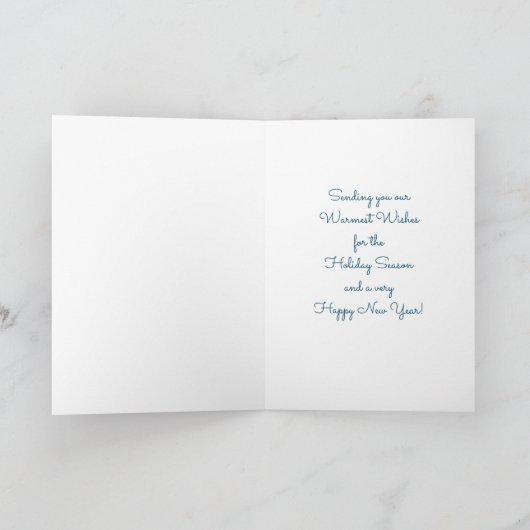 Sending you our
Warmest Wishes
for the
Holiday Season
and a very
Happy New Year!